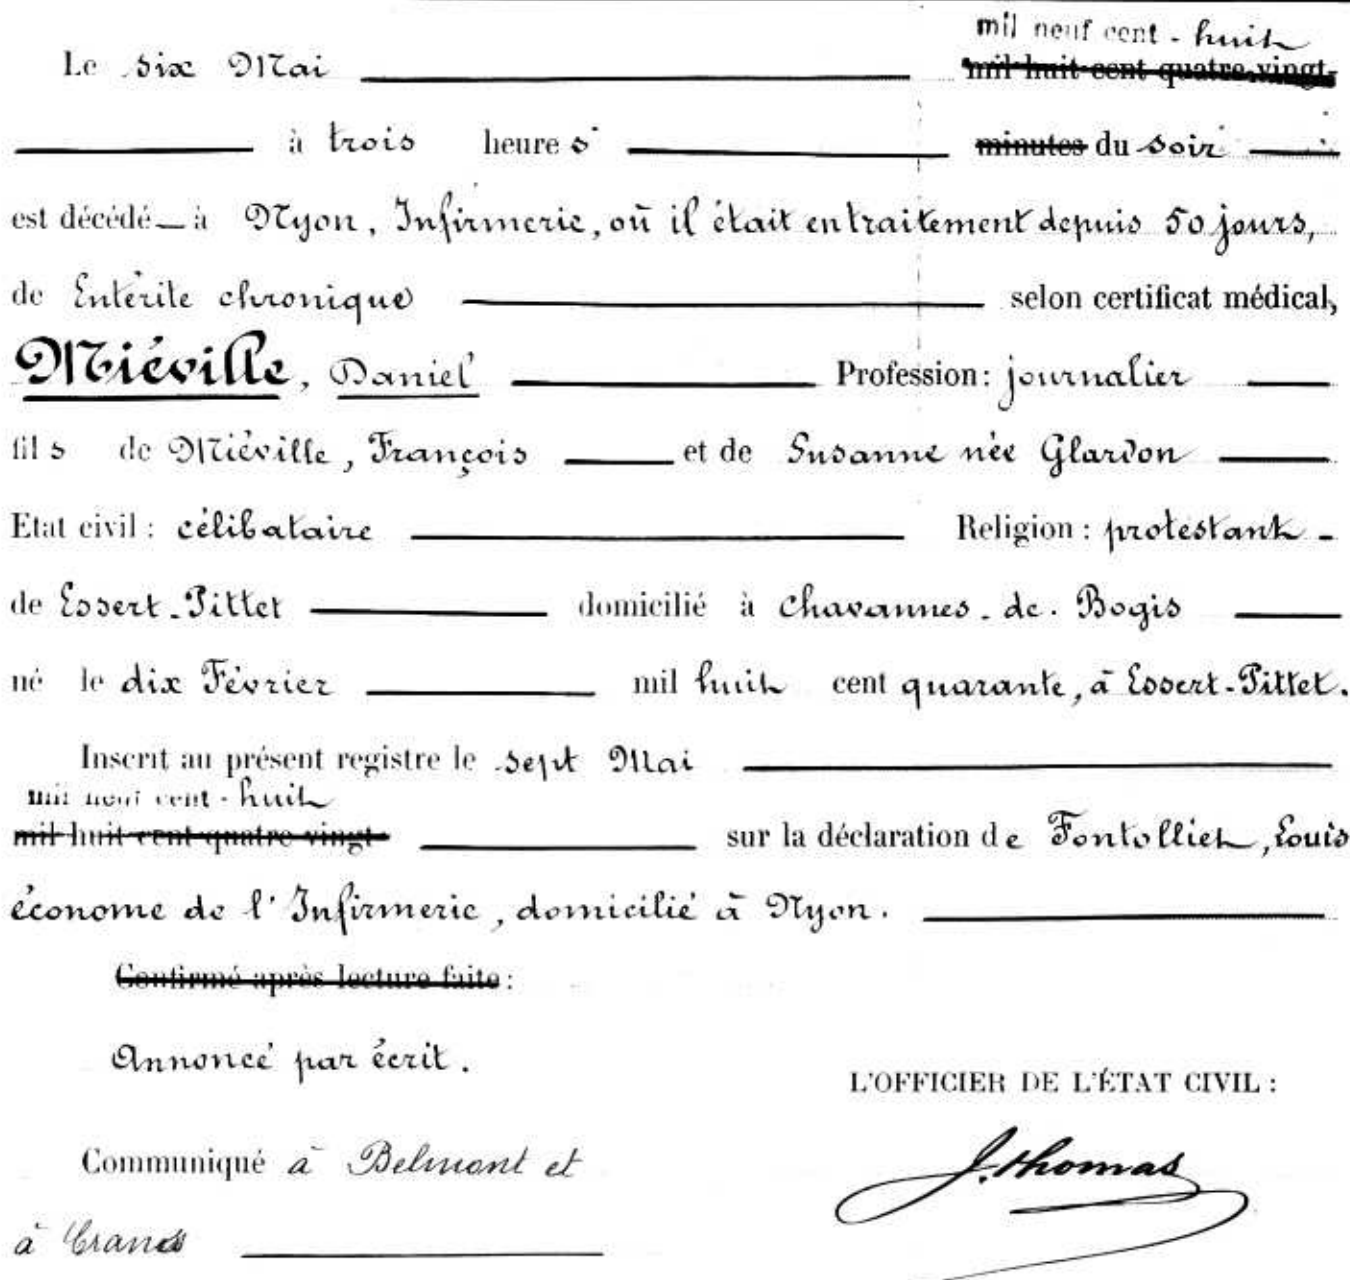 mil neuf cent - huit
Le six Mai mil huit cent quatre-vingt-
à trois heures minutes du soir
est décédé à Nyon, Infirmerie, où il était en traitement depuis 50 jours,
de Entérite chronique selon certificat médical,
Miéville, Daniel Profession: journalier
fils de Miéville, François et de Susanne née Glardon
Etat civil : célibataire Religion : protestant
de Essert-Pittet domicilié à Chavannes-de-Bogis
né le dix Février mil huit cent quarante, à Essert-Pittet.
Inscrit au présent registre le sept Mai
mil neuf cent - huit
mil huit cent quatre-vingt- sur la déclaration de Fontolliet, Louis
économe de l'Infirmerie, domicilié à Nyon.
Confirmé après lecture faite :
Annoncé par écrit.
L'OFFICIER DE L'ÉTAT CIVIL :
Communiqué à Belmont et
J. Thomas
à Crans